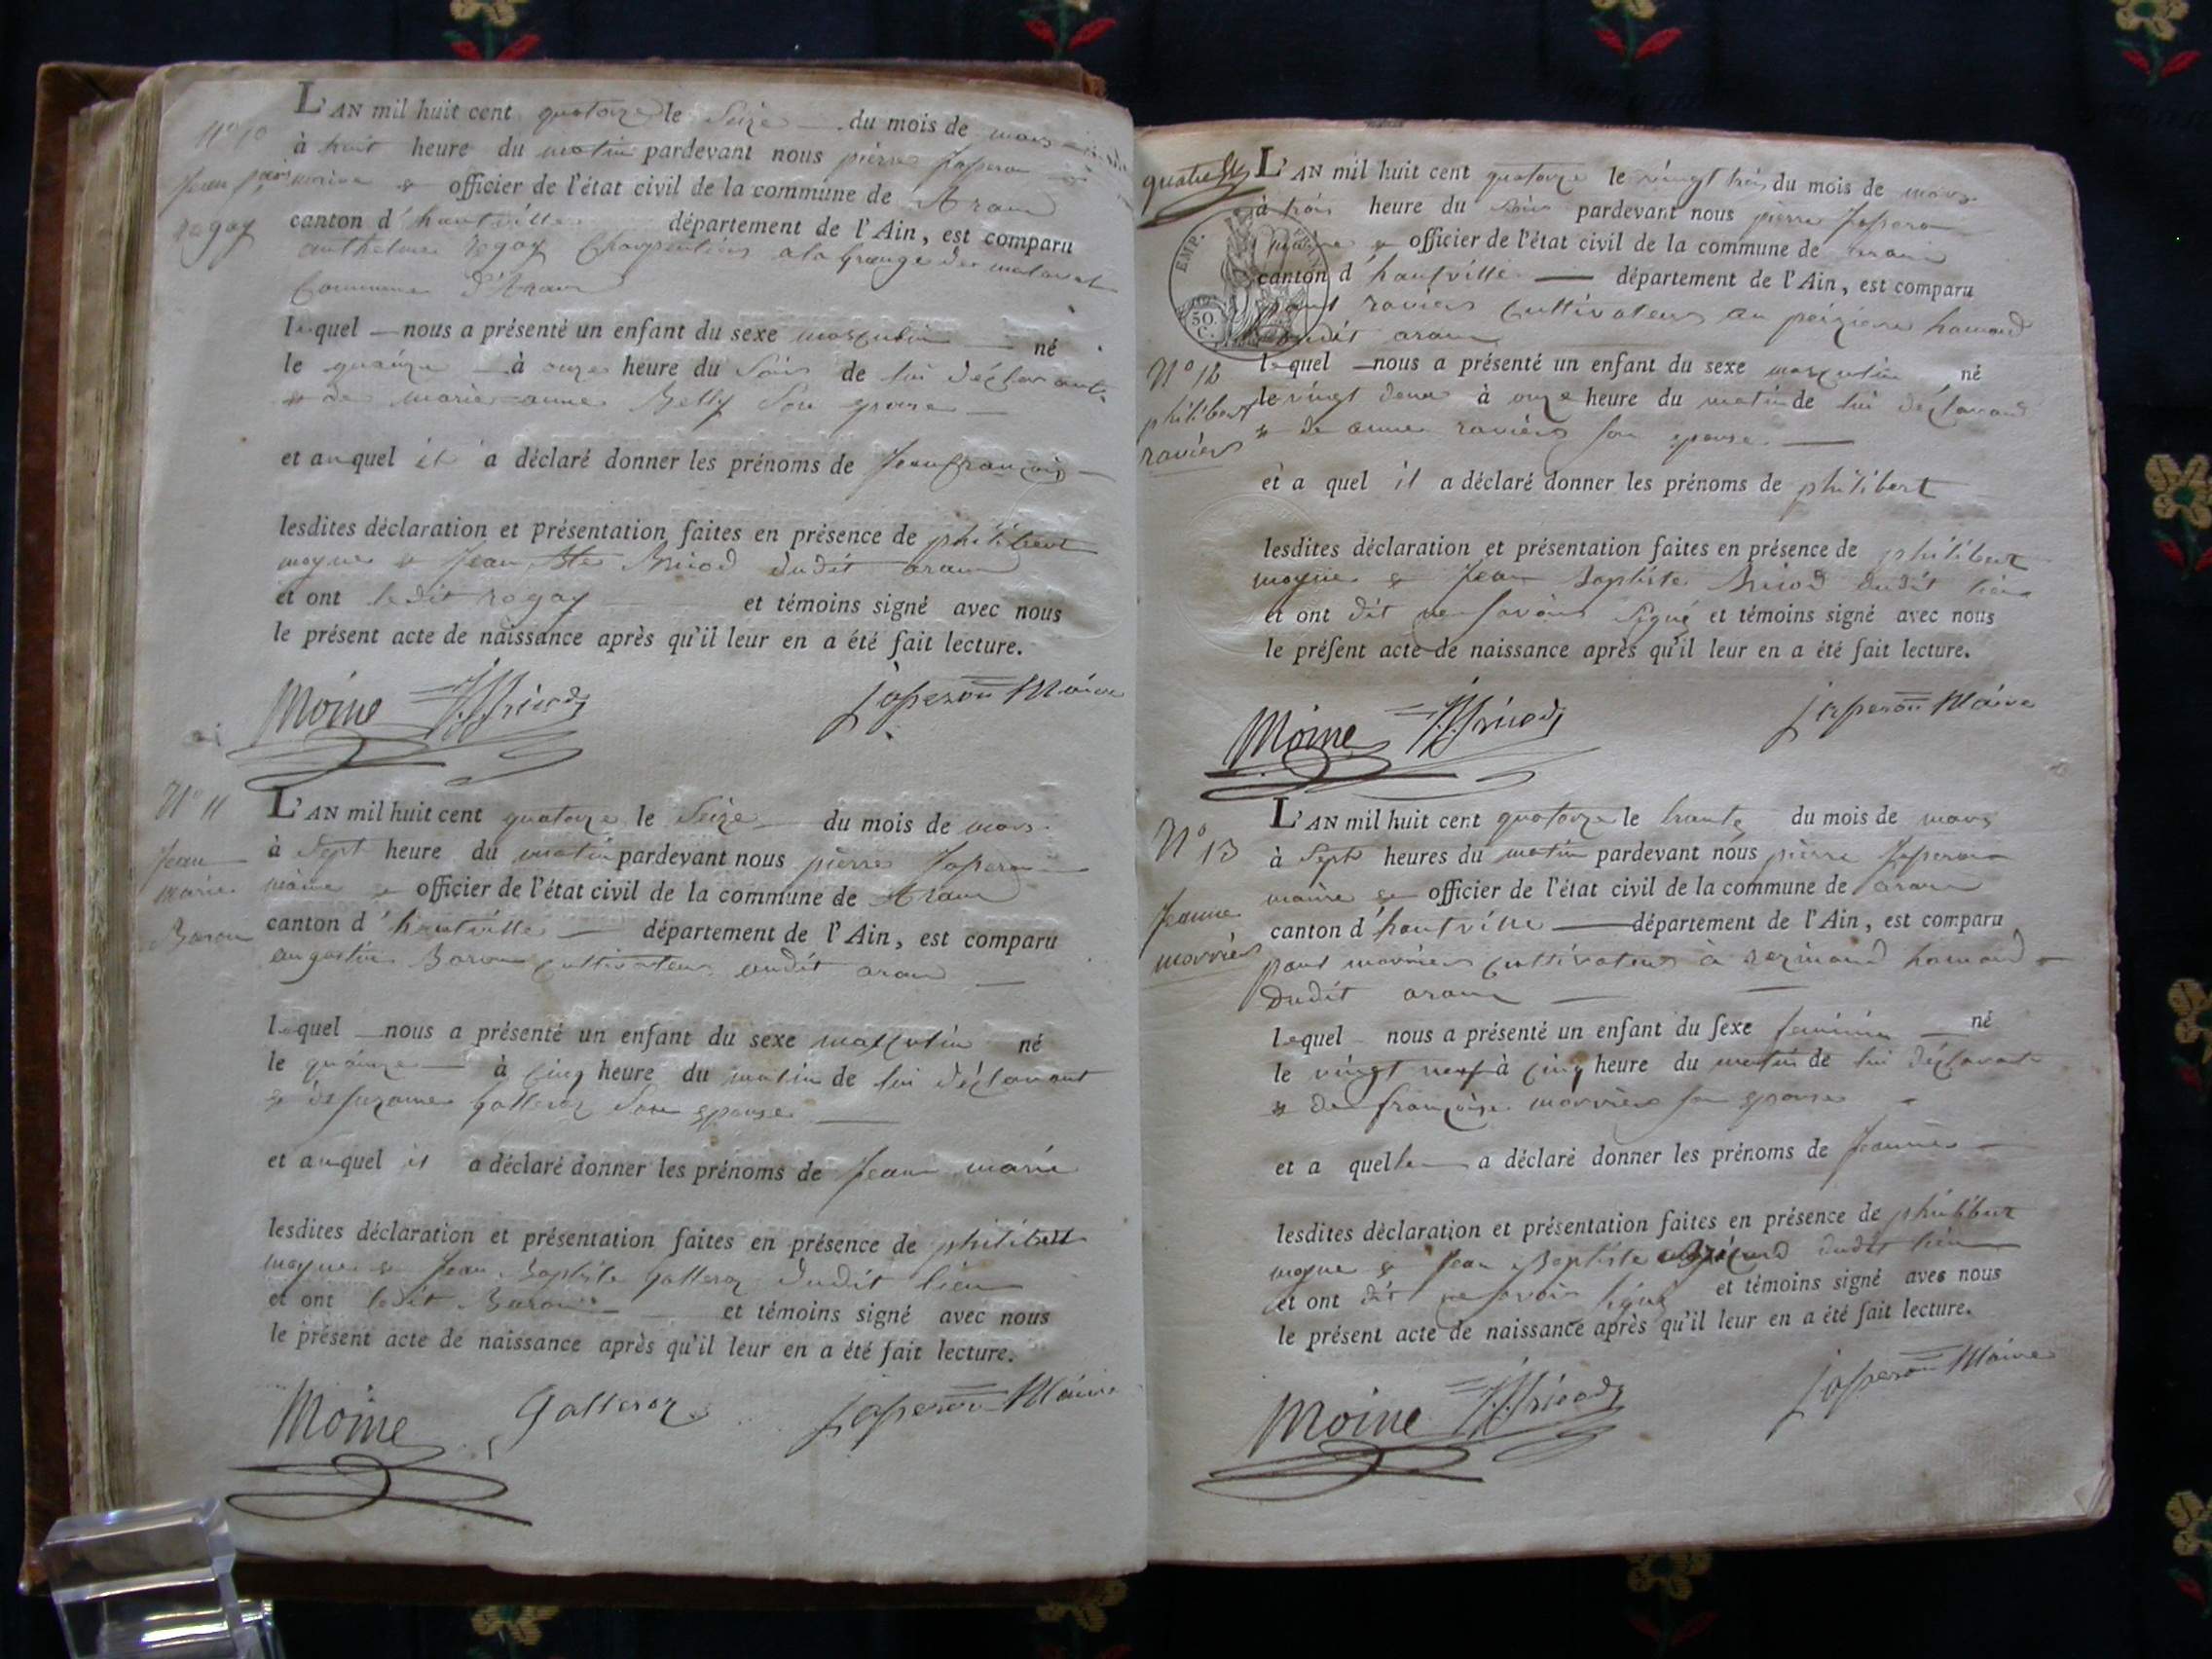 N° 10
Jean fçois
rogay
L'AN mil huit cent quatorze le Seize du mois de mars
à huit heure du matin pardevant nous pierre Josperon
maire & officier de l'état civil de la commune de Aran
canton d'hautville département de l'Ain, est comparu
anthelme rogay Charpentier a la grange de
Commune d'Aran
lequel nous a présenté un enfant du sexe masculin né
le quainze à onze heure du Soir de lui déclarant
& de marie anne Belly Son epouse
et auquel il a déclaré donner les prénoms de Jean françois
lesdites déclaration et présentation faites en présence de philibert
moyne & Jean Bte Bricod dudit aran
et ont ledit rogay et témoins signé avec nous
le présent acte de naissance après qu'il leur en a été fait lecture.
Moine Bricod Josperon Maire
N° 11
Jean
marie
Baron
L'AN mil huit cent quatorze le Seize du mois de mars
à Sept heure du matin pardevant nous pierre Josperon
maire & officier de l'état civil de la commune de Aran
canton d'hautville département de l'Ain, est comparu
augustin Baron cultivateur audit aran
lequel nous a présenté un enfant du sexe masculin né
le quainze à cinq heure du matin de lui déclarant
& de Suzanne Galleroz Son epouse
et auquel il a déclaré donner les prénoms de Jean marie
lesdites déclaration et présentation faites en présence de philibert
moyne & Jean Baptiste Galleroz dudit lieu
et ont ledit Baron et témoins signé avec nous
le présent acte de naissance après qu'il leur en a été fait lecture.
Moine Galleroz Josperon Maire
quatre
EMP.
50.
C.
N° 12
philibert
raviers
L'AN mil huit cent quatorze le vingt trois du mois de mars
à trois heure du Soir pardevant nous pierre Josperon
maire & officier de l'état civil de la commune de aran
canton d'hautville département de l'Ain, est comparu
paul raviers cultivateur au hamaud
dudit aran
lequel nous a présenté un enfant du sexe masculin né
le vingt deux à onze heure du matin de lui déclarand
& de anne raviers son epouse
et a quel il a déclaré donner les prénoms de philibert
lesdites déclaration et présentation faites en présence de philibert
moyne & Jean Baptiste Bricod dudit lieu
et ont dit ne savoir Signé et témoins signé avec nous
le présent acte de naissance après qu'il leur en a été fait lecture.
Moine Bricod Josperon Maire
N° 13
Jeanne
morriers
L'AN mil huit cent quatorze le trante du mois de mars
à Sept heures du matin pardevant nous pierre Josperon
maire & officier de l'état civil de la commune de aran
canton d'hautville département de l'Ain, est comparu
paul morriers cultivateur à rezinand hamaud
Dudit aran
lequel nous a présenté un enfant du sexe feminin né
le vingt neuf à cinq heure du matin de lui déclarant
& de françoise morriers son epouse
et a quelle a déclaré donner les prénoms de Jeanne
lesdites déclaration et présentation faites en présence de philibert
moyne & Jean Baptiste dudit lieu
et ont dit ne savoir signé et témoins signé avec nous
le présent acte de naissance après qu'il leur en a été fait lecture.
Moine Bricod Josperon Maire